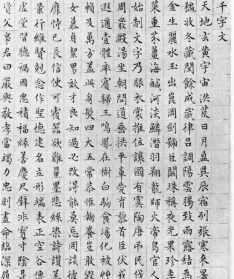 千字文
天地玄黃宇宙洪荒日月盈昃辰宿列張寒來暑
收冬藏閏餘成歲律呂調陽雲騰致雨露結為霜
金生麗水玉出崑岡劍號巨闕珠稱夜光果珍李
菜重芥薑海鹹河淡鱗潛羽翔龍師火帝鳥官人
始制文字乃服衣裳推位讓國有虞陶唐弔民伐
周發殷湯坐朝問道垂拱平章愛育黎首臣伏戎
遐邇壹體率賓歸王鳴鳳在樹白駒食場化被草
賴及萬方蓋此身髮四大五常恭惟鞠養豈敢毀
女慕貞絜男效才良知過必改得能莫忘罔談彼
靡恃己長信使可覆器欲難量墨悲絲染詩讚羔
景行維賢克念作聖德建名立形端表正空谷傳
虛堂習聽禍因惡積福緣善慶尺璧非寶寸陰是
資父事君曰嚴與敬孝當竭力忠則盡命臨深履